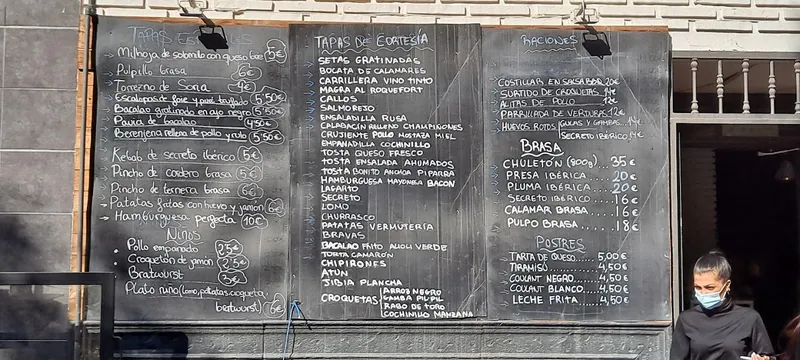 TAPAS
Milhoja de solomillo con queso brie 5€
Pulpillo brasa 6€
Torrezno de Soria 4€
Escalopas de foie y puré trufado 5,50€
Bacalao gratinado en ajo negro 5,50€
Pavía de bacalao 4,50€
Berenjena rellena de pollo y roto 5,50€
Kebab de secreto ibérico 5€
Pincho de cordero brasa 5€
Pincho de ternera brasa 6€
Patatas fritas con huevo y jamón 6€
Hamburguesa perfecta 10€
Niños
Pollo empanado 2,5€
Croquetón de jamón 2,5€
Bratwurst 3€
Plato niño (lomo, patatas, croqueta,
bratwurst) 6€
TAPAS DE CORTESÍA
SETAS GRATINADAS
BOCATA DE CALAMARES
CARRILLERA VINO TINTO
MAGRA AL ROQUEFORT
CALLOS
SALMOREJO
ENSALADILLA RUSA
CALABACÍN RELLENO CHAMPIÑONES
CRUJIENTE POLLO MOSTAZA MIEL
EMPANADILLA COCHINILLO
TOSTA QUESO FRESCO
TOSTA ENSALADA AHUMADOS
TOSTA BONITO ANCHOA PIPARRA
HAMBURGUESA MAYONESA BACON
LAGARTO
SECRETO
LOMO
CHURRASCO
PATATAS VERMUTERÍA
BRAVAS
BACALAO FRITO ALIOLI VERDE
TORTA CAMARÓN
CHIPIRONES
ATÚN
JIBIA PLANCHA
CROQUETAS ARROZ NEGRO
GAMBA PIL PIL
RABO DE TORO
COCHINILLO MANZANA
RACIONES
COSTILLAR EN SALSA BBQ 20€
SURTIDO DE CROQUETAS 14€
ALITAS DE POLLO 12€
PARRILLADA DE VERDURAS 12€
HUEVOS ROTOS GULAS Y GAMBAS 14€
SECRETO IBÉRICO 14€
BRASA
CHULETÓN (800g) ... 35€
PRESA IBÉRICA .... 20€
PLUMA IBÉRICA .... 20€
SECRETO IBÉRICO .... 16€
CALAMAR BRASA .... 16€
PULPO BRASA .... 18€
POSTRES
TARTA DE QUESO..... 5,00€
TIRAMISÚ ..... 4,50€
COULANT NEGRO..... 4,50€
COULANT BLANCO..... 4,50€
LECHE FRITA .... 4,50€